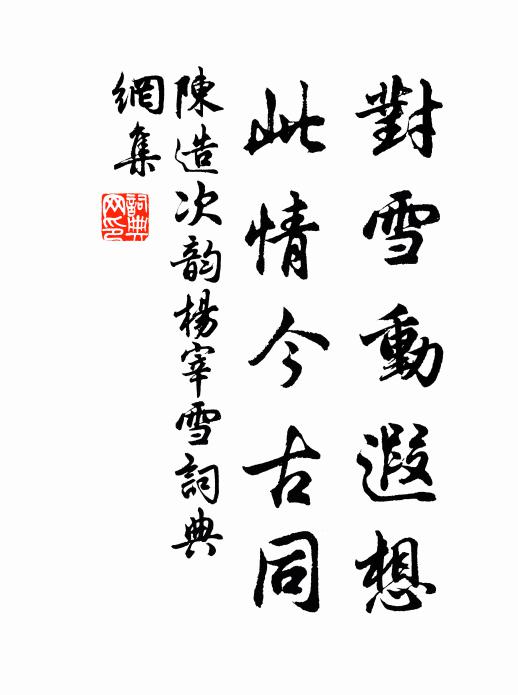 對雪動遐想
此情今古同
陳造次韵楊宰雪詞典
網集
詞典
网印